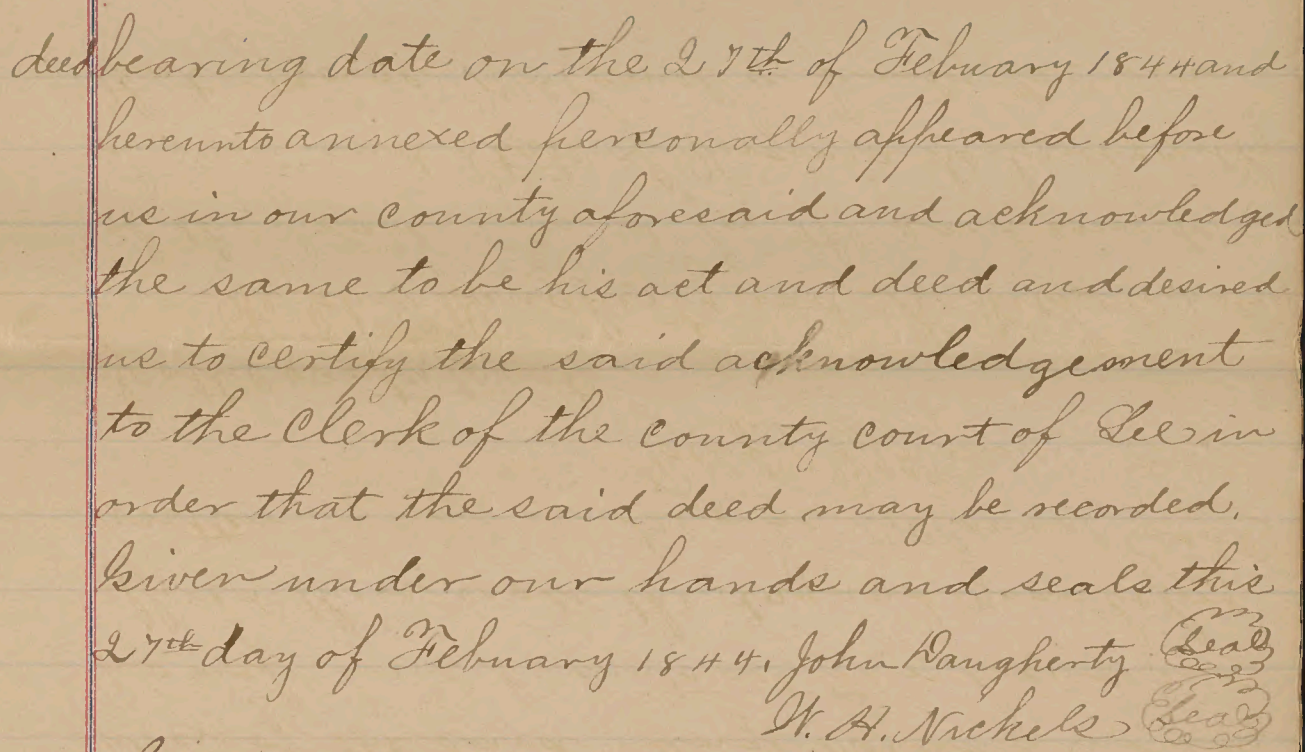 deed bearing date on the 27th of Febuary 1844 and
hereunto annexed personally appeared before
us in our county aforesaid and acknowledged
the same to be his act and deed and desired
us to certify the said acknowledgement
to the Clerk of the county court of Lee in
order that the said deed may be recorded.
Given under our hands and seals this
27th day of Febuary 1844. John Daugherty Seal
W. H. Nickels Seal